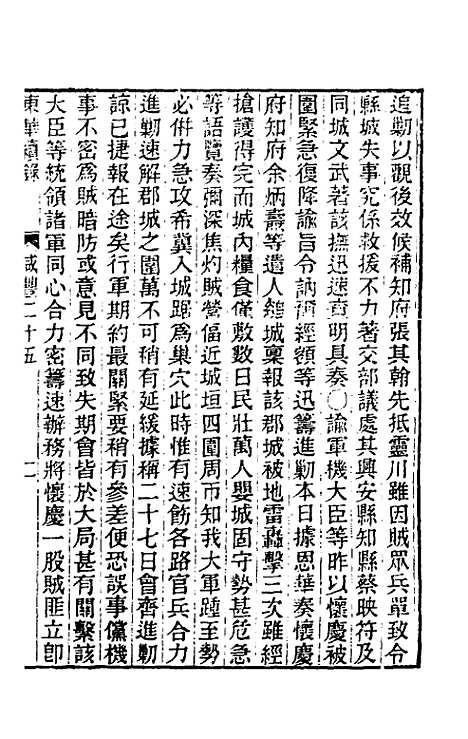 追勦以觀後效候補知府張其翰先抵靈川雖因賊眾兵單致令
縣城失事究係救援不力著交部議處其興安縣知縣蔡映符及
同城文武著該撫迅速查明具奏○諭軍機大臣等昨以懷慶被
圍緊急復降諭旨令訥爾經額等迅籌進勦本日據恩華奏懷慶
府知府余炳燾等遣人縋城稟報該郡城被地雷轟擊三次雖經
搶護得完而城內糧食僅敷數日民壯萬人嬰城固守勢甚危急
等語覽奏彌深焦灼賊營偪近城垣四圍周帀知我大軍踵至勢
必併力急攻希冀入城踞爲巢穴此時惟有速飭各路官兵合力
進勦速解郡城之圍萬不可稍有延緩據稱二十七日會齊進勦
諒已捷報在途矣行軍期約最關緊要稍有參差便恐誤事儻機
事不密爲賊暗防或意見不同致失期會皆於大局甚有關繫該
大臣等統領諸軍同心合力密籌速辦務將懷慶一股賊匪立卽
東華續錄 咸豐二十五 二